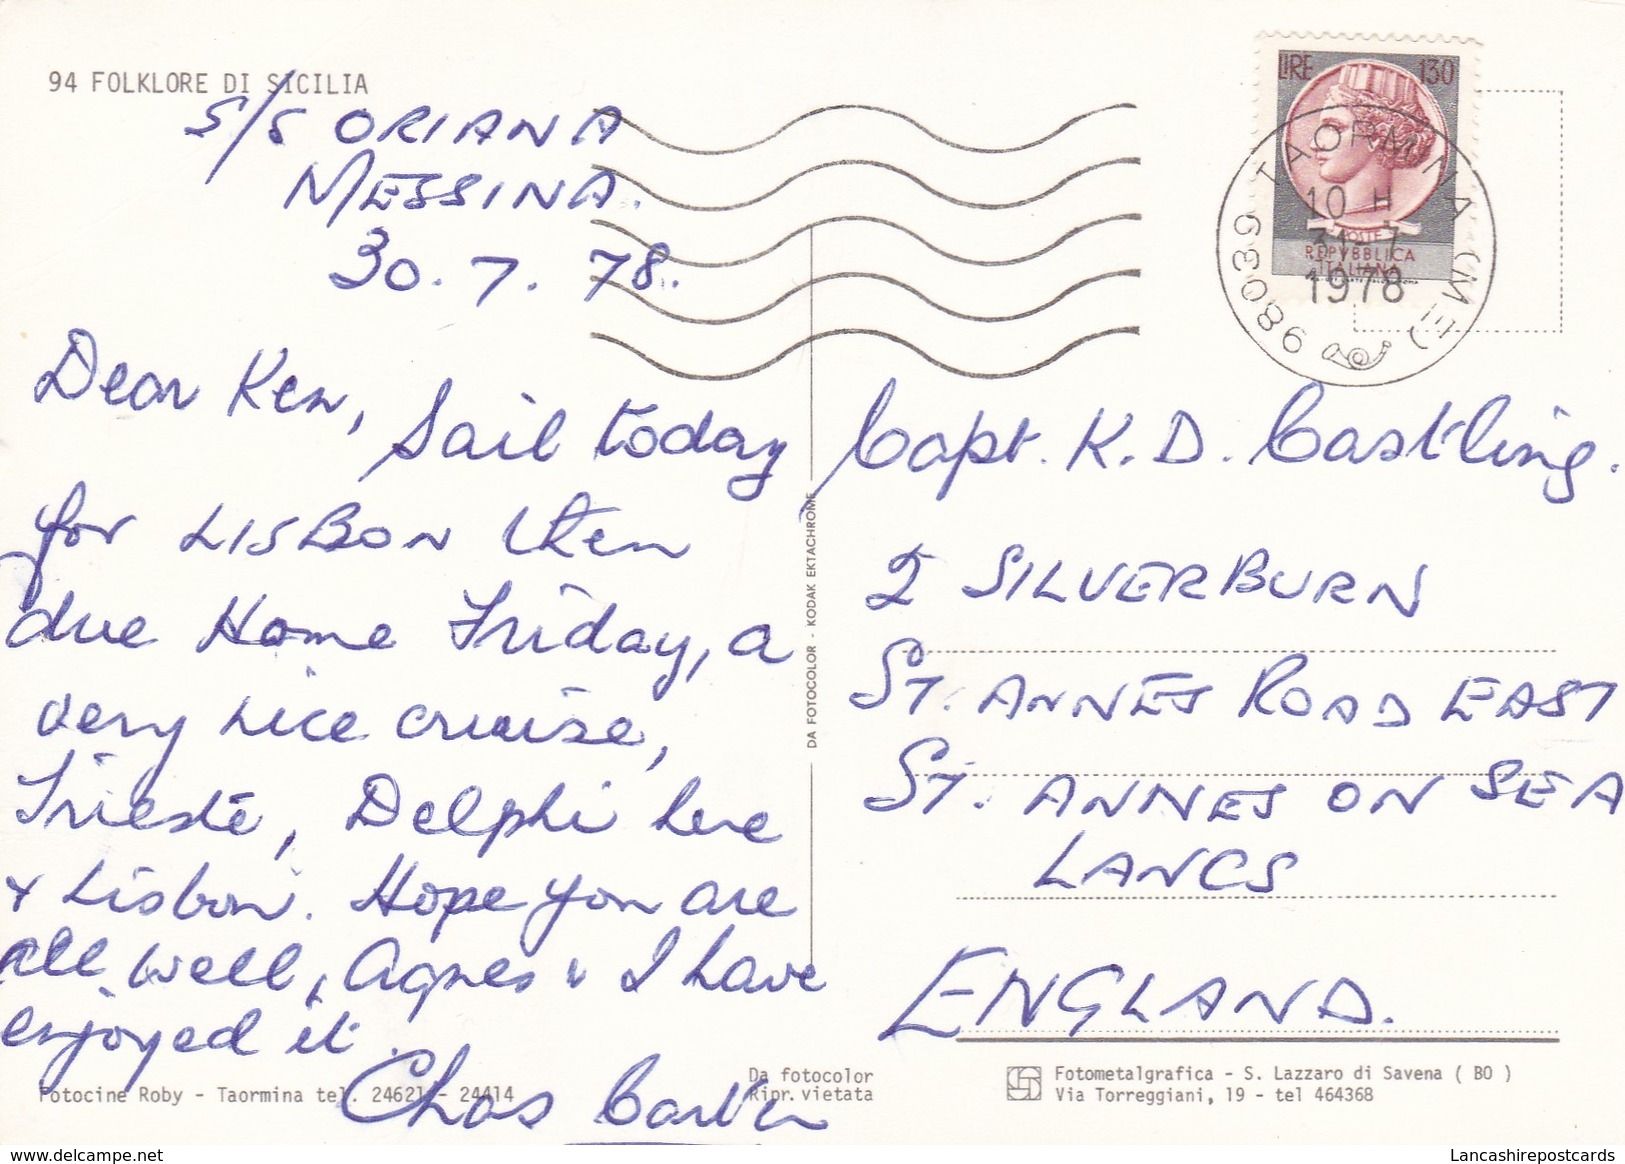 94 FOLKLORE DI SICILIA
S/S ORIANA
MESSINA.
30.7.78.
Dear Ken,
Sail today
for LISBON then
due Home Friday, a
very nice cruise,
Trieste, Delphi here
& Lisbon. Hope you are
all well, Agnes & I have
enjoyed it.
Chas
Fotocine Roby - Taormina tel. 24621 - 24414
Da fotocolor
Ripr. vietata
DA FOTOCOLOR - KODAK EKTACHROME
LIRE 130
POSTE
REPVBBLICA
ITALIANA
98039 TAORMINA (ME)
10 H
31-7
1978
Capt. K. D. Castling.
2 SILVERBURN
ST. ANNES ROAD EAST
ST. ANNES ON SEA
LANCS
ENGLAND.
Fotometalgrafica - S. Lazzaro di Savena ( BO )
Via Torreggiani, 19 - tel 464368
www.delcampe.net
Lancashirepostcards